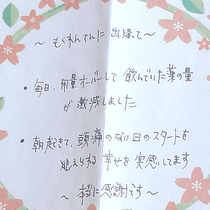 ～もくれんさんに出逢えて～
・毎日、用量オーバーして飲んでいた薬の量
が激減しました
・朝起きて、頭痛のない日のスタートを
迎えられる幸せを実感してます
～本当に感謝です～